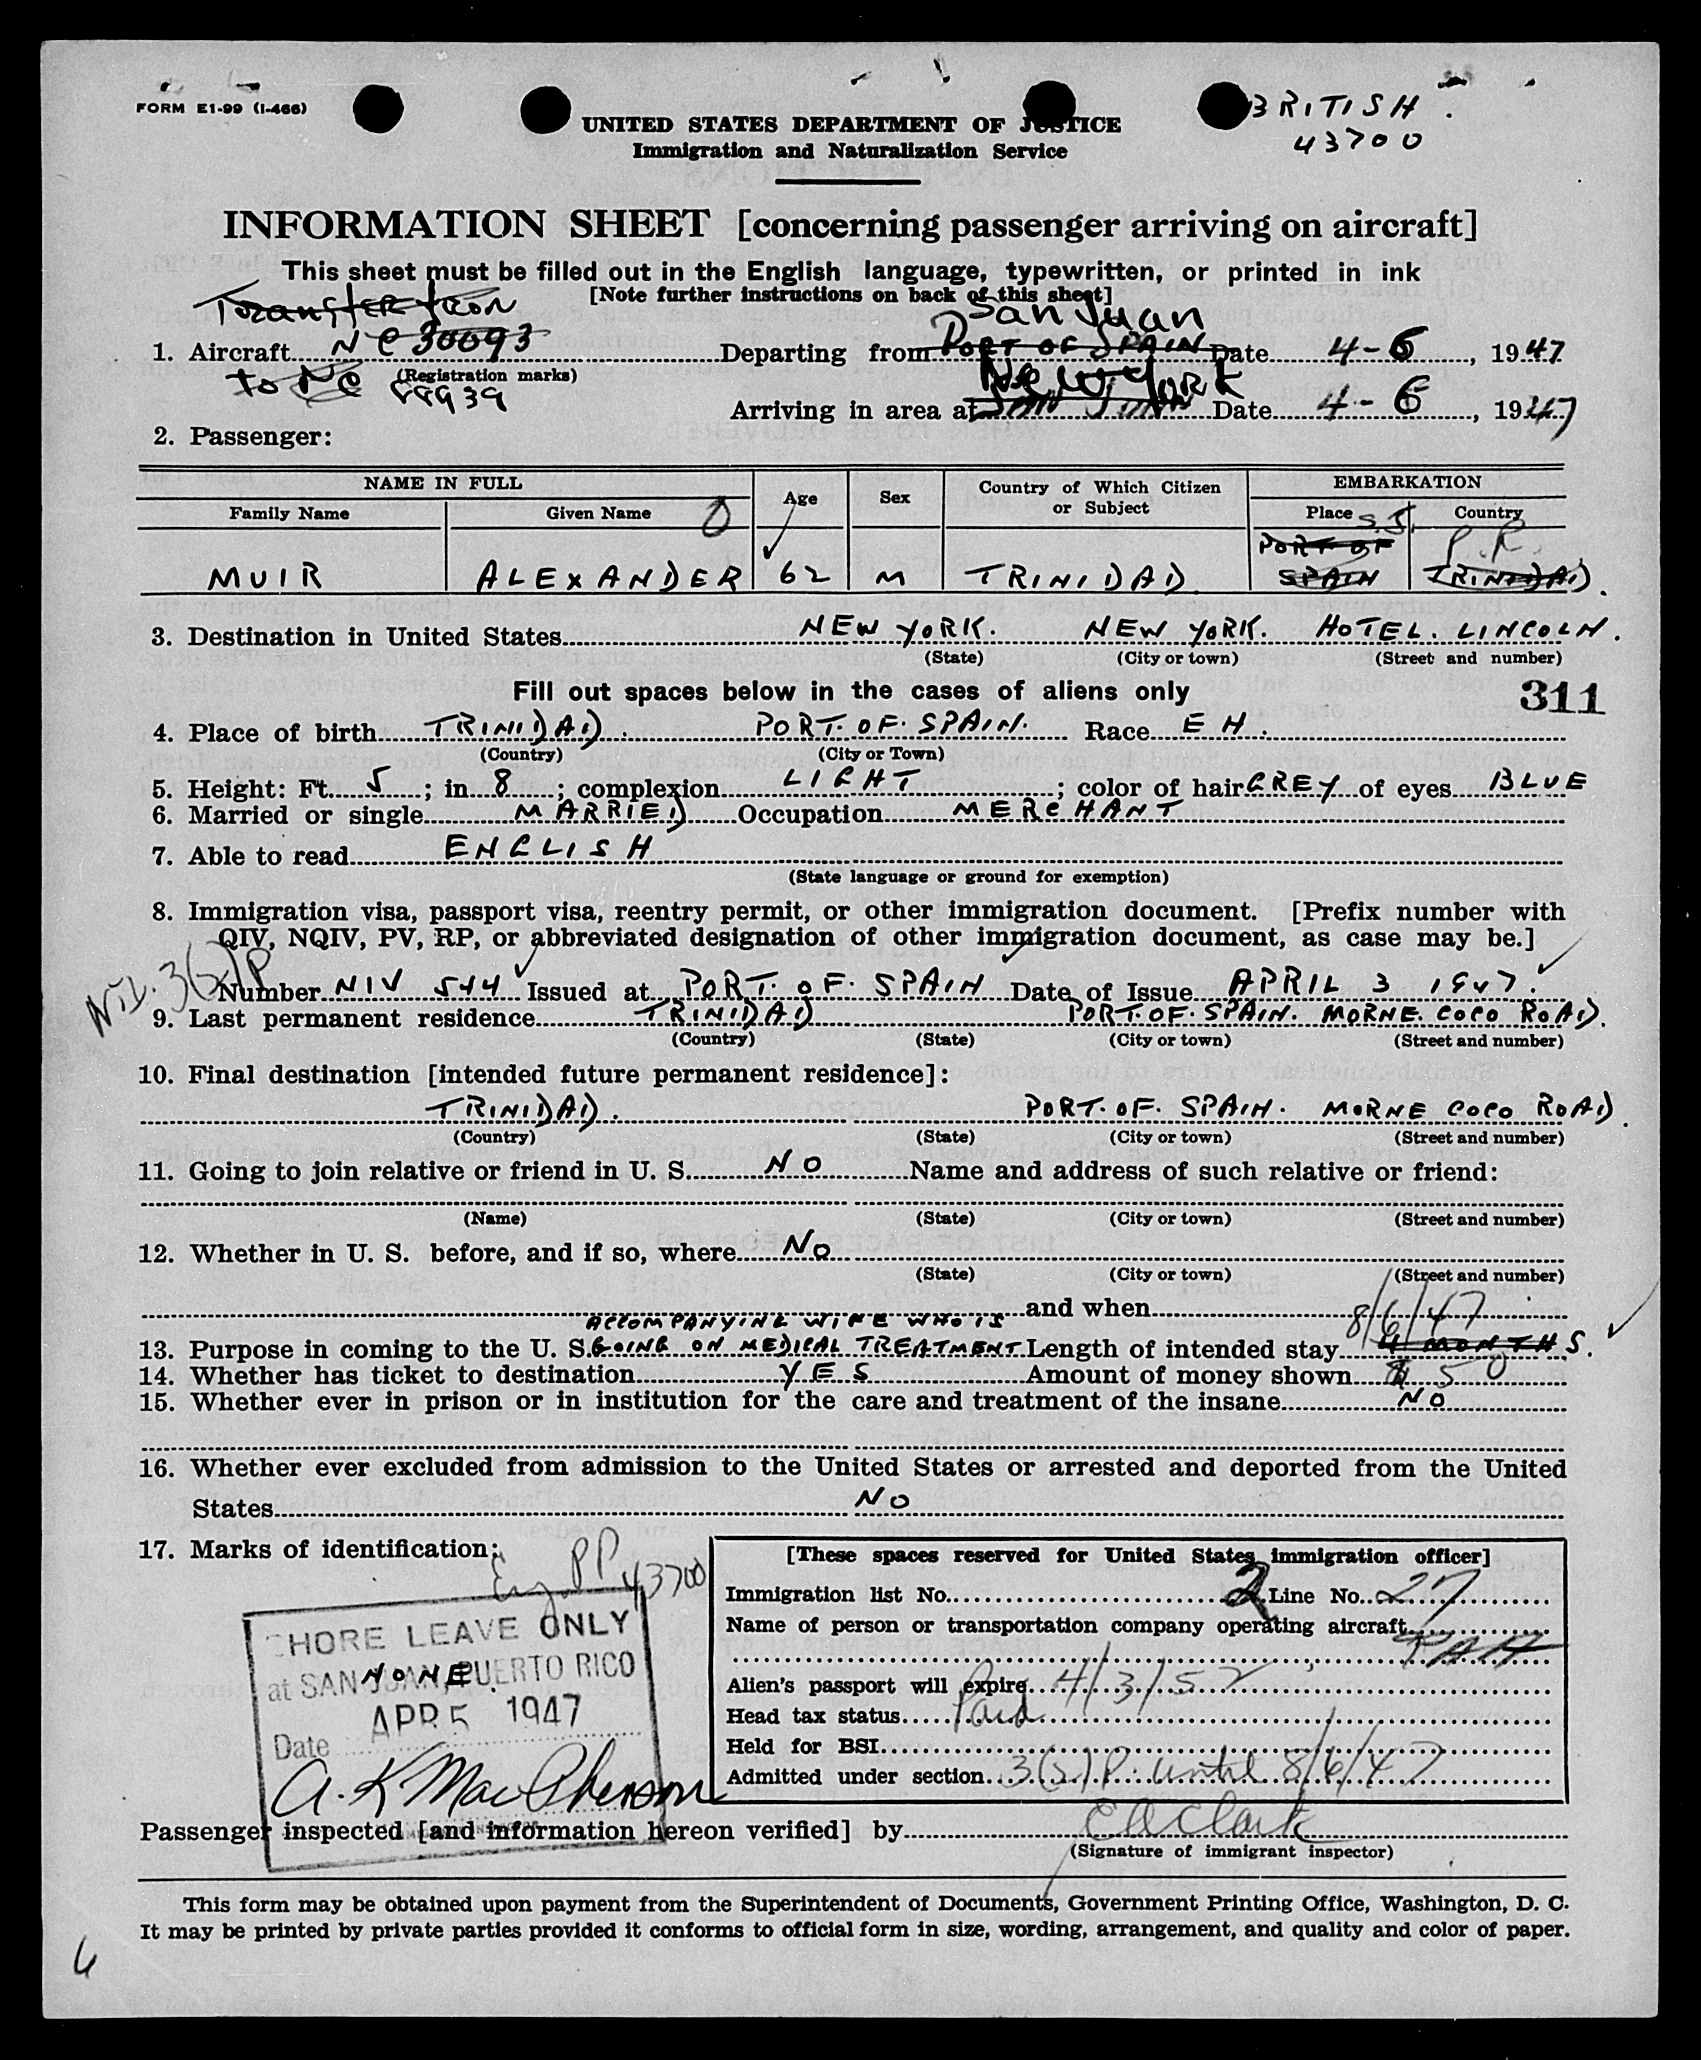 FORM E1-99 (I-466)
BRITISH.
43700
UNITED STATES DEPARTMENT OF JUSTICE
Immigration and Naturalization Service
INFORMATION SHEET [concerning passenger arriving on aircraft]
This sheet must be filled out in the English language, typewritten, or printed in ink
[Note further instructions on back of this sheet]
Transfer from
San Juan
1. Aircraft NC 30093 Departing from PORT OF SPAIN Date 4-6, 1947
(Registration marks)
to NC 88939
New York
Arriving in area at San Juan Date 4-6, 1947
2. Passenger:
NAME IN FULL Age Sex Country of Which Citizen or Subject EMBARKATION
Family Name Given Name Place Country
S.J. P.R.
MUIR ALEXANDER 62 M TRINIDAD PORT OF SPAIN TRINIDAD.
3. Destination in United States NEW YORK. NEW YORK. HOTEL. LINCOLN.
(State) (City or town) (Street and number)
Fill out spaces below in the cases of aliens only
311
4. Place of birth TRINIDAD. PORT. OF. SPAIN. Race EH.
(Country) (City or Town)
5. Height: Ft. 5; in. 8; complexion LIGHT; color of hair GREY of eyes BLUE
6. Married or single MARRIED Occupation MERCHANT
7. Able to read ENGLISH
(State language or ground for exemption)
8. Immigration visa, passport visa, reentry permit, or other immigration document. [Prefix number with
QIV, NQIV, PV, RP, or abbreviated designation of other immigration document, as case may be.]
NIV. 3(2)P
Number NIV 544 Issued at PORT. OF. SPAIN Date of Issue APRIL 3 1947.
9. Last permanent residence TRINIDAD PORT. OF. SPAIN. MORNE. COCO ROAD.
(Country) (State) (City or town) (Street and number)
10. Final destination [intended future permanent residence]:
TRINIDAD. PORT. OF. SPAIN. MORNE COCO ROAD.
(Country) (State) (City or town) (Street and number)
11. Going to join relative or friend in U. S. NO Name and address of such relative or friend:
(Name) (State) (City or town) (Street and number)
12. Whether in U. S. before, and if so, where NO
(State) (City or town) (Street and number)
and when
ACCOMPANYING WIFE WHO IS 8/6/47
13. Purpose in coming to the U. S. GOING ON MEDICAL TREATMENT Length of intended stay 4 MONTHS.
14. Whether has ticket to destination YES Amount of money shown $ 50
15. Whether ever in prison or in institution for the care and treatment of the insane NO
16. Whether ever excluded from admission to the United States or arrested and deported from the United
States NO
17. Marks of identification:
PP 43700
NONE
SHORE LEAVE ONLY
at SAN JUAN, PUERTO RICO
Date APR 5 1947
A. K MacPherson
[These spaces reserved for United States immigration officer]
Immigration list No. 2 Line No. 27
Name of person or transportation company operating aircraft
PAA
Alien's passport will expire 4/3/52
Head tax status Paid
Held for BSI
Admitted under section 3(2)P. until 8/6/47
Passenger inspected [and information hereon verified] by E A Clark
(Signature of immigrant inspector)
This form may be obtained upon payment from the Superintendent of Documents, Government Printing Office, Washington, D. C.
It may be printed by private parties provided it conforms to official form in size, wording, arrangement, and quality and color of paper.
6